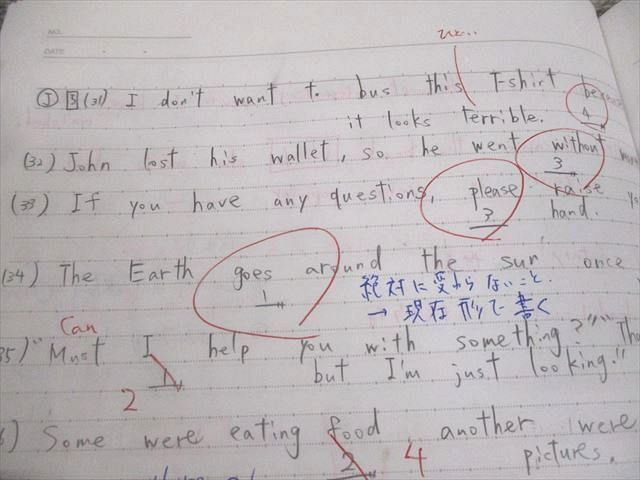 NO.
DATE
ひどい
① 5 (31) I don't want to bus this T-shirt
4
it looks terrible.
(32) John lost his wallet, so he went without
3
(33) If you have any questions, please raise
3
hand.
(34) The Earth goes around the sun once
1
絶対に変わらないこと.
→ 現在形で書く
Can
35) "Must I help you with something?" "
1
2
but I'm just looking."
) Some were eating food another were
2
4
pictures.